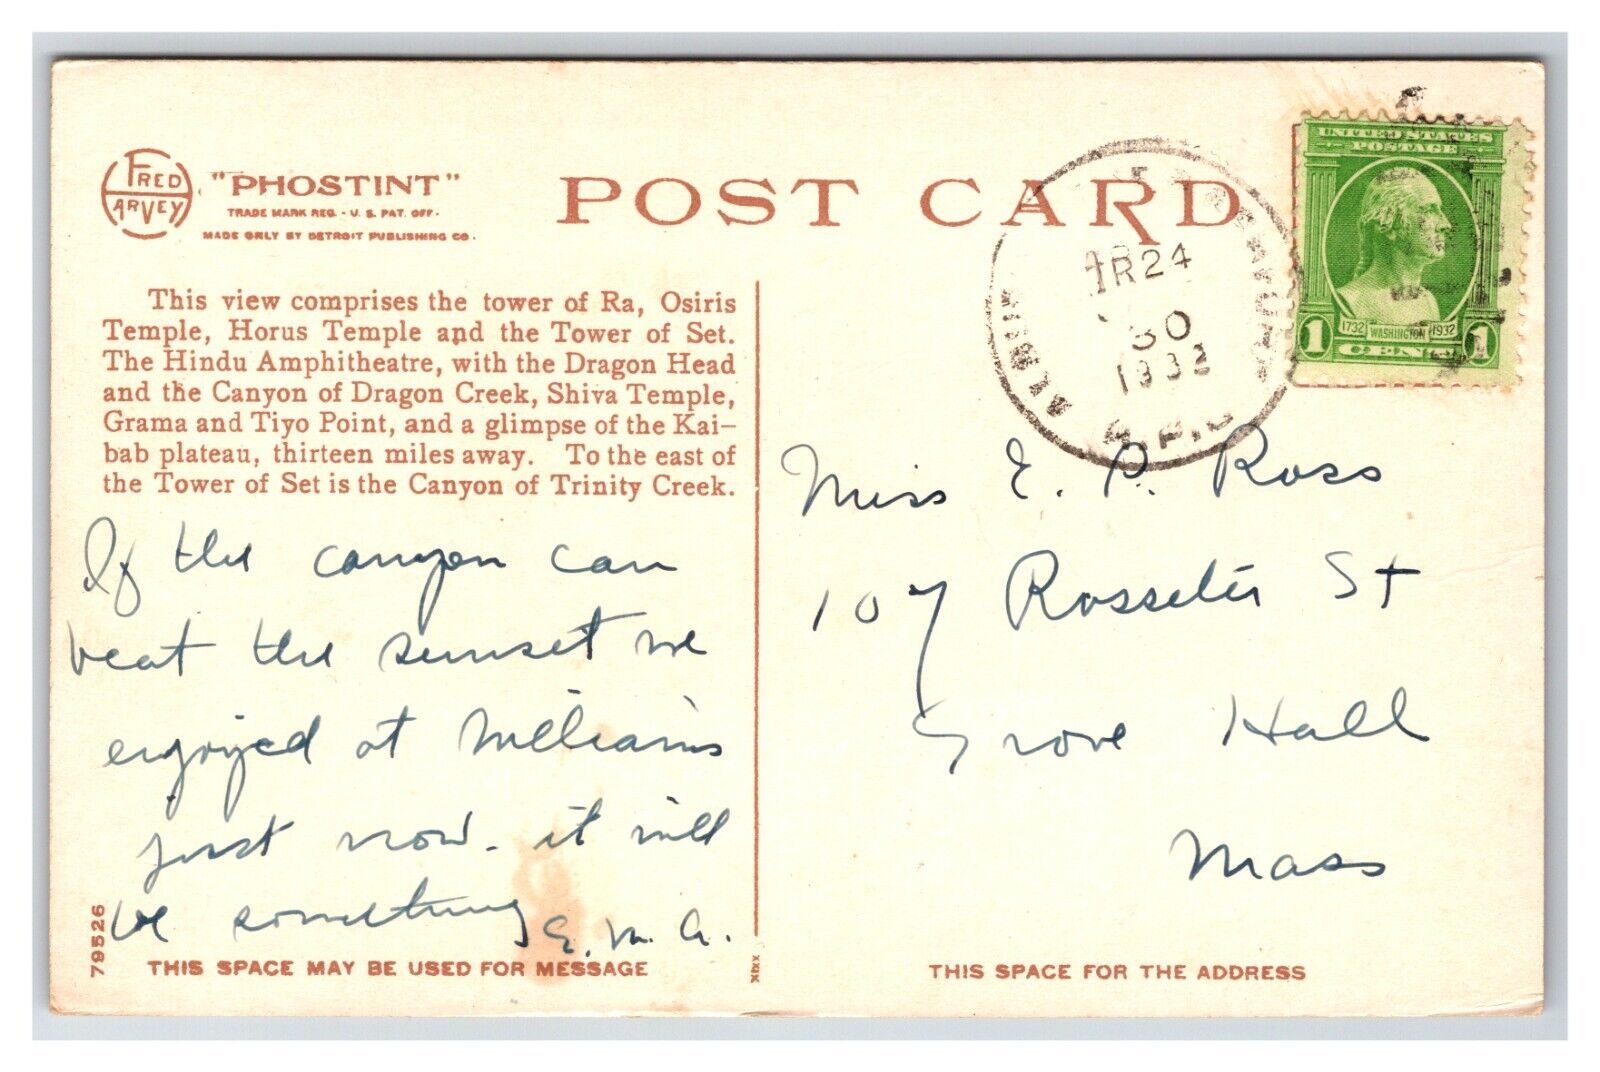 FRED
HARVEY
"PHOSTINT"
TRADE MARK REG. - U. S. PAT. OFF.
MADE ONLY BY DETROIT PUBLISHING CO.
POST CARD
UNITED STATES
POSTAGE
1732 WASHINGTON 1932
1 CENT 1
24
30
1932
R.P.O.
This view comprises the tower of Ra, Osiris
Temple, Horus Temple and the Tower of Set.
The Hindu Amphitheatre, with the Dragon Head
and the Canyon of Dragon Creek, Shiva Temple,
Grama and Tiyo Point, and a glimpse of the Kai-
bab plateau, thirteen miles away. To the east of
the Tower of Set is the Canyon of Trinity Creek.
If the canyon can
beat the sunset we
enjoyed at Williams
just now - it will
be something
E. M. A.
Miss E. P. Ross
107 Rosseter St
Grove Hall
Mass
79526
THIS SPACE MAY BE USED FOR MESSAGE
THIS SPACE FOR THE ADDRESS